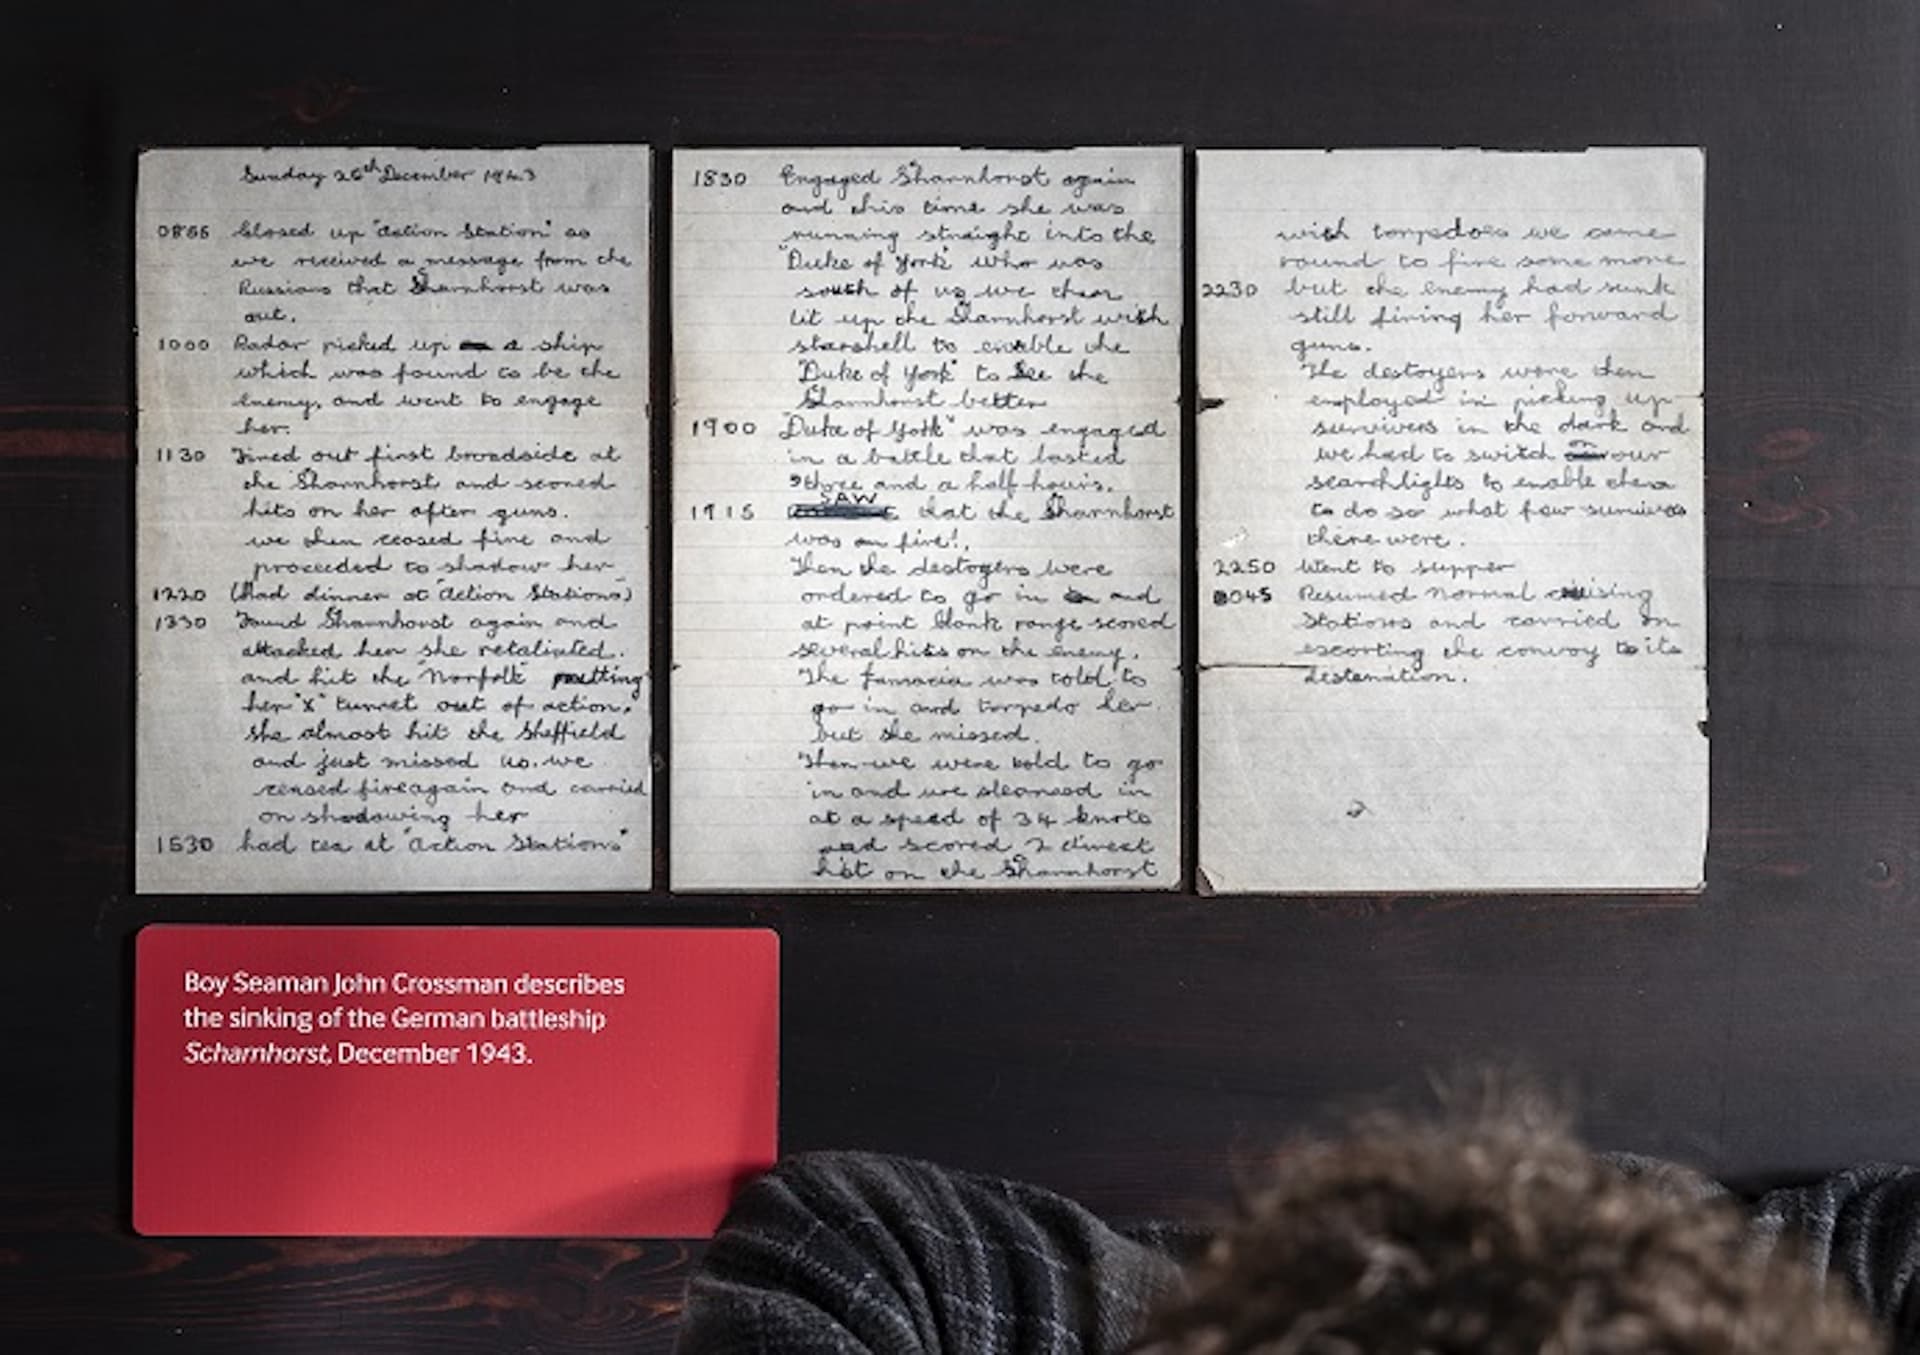 Sunday 26th December 1943
0855 Closed up "Action Station" as
we received a message from the
Russians that Sharnhorst was
out.
1000 Radar picked up a ship
which was found to be the
enemy, and went to engage
her.
1130 Fired out first broadside at
the Sharnhorst and scored
hits on her after guns.
we then ceased fire and
proceeded to shadow her
1220 (Had dinner at "Action Stations")
1330 Found Sharnhorst again and
attacked her she retaliated.
and hit the "Norfolk" putting
her "X" turret out of action.
she almost hit the Sheffield
and just missed us. we
ceased fire again and carried
on shadowing her
1530 had tea at "Action Stations"
1830 Engaged Sharnhorst again
and this time she was
running straight into the
"Duke of York" who was
south of us, we then
lit up the Sharnhorst with
starshell to enable the
"Duke of York" to see the
Sharnhorst better
1900 "Duke of York" was engaged
in a battle that lasted
three and a half hours.
1915 SAW that the Sharnhorst
was on fire!.
Then the destoyers were
ordered to go in and
at point blank range scored
several hits on the enemy.
The Jamacia was told to
go in and torpedo her
but she missed.
Then we were told to go
in and we steamed in
at a speed of 34 knots
and scored 2 direct
hit on the Sharnhorst
with torpedoes we came
round to fire some more
2230 but the enemy had sunk
still firing her forward
guns.
The destoyers were then
employed in picking up
survivers in the dark and
we had to switch on our
searchlights to enable them
to do so what few survivors
there were.
2250 Went to supper
0045 Resumed Normal cruising
Stations and carried on
escorting the convoy to its
destenation.
Boy Seaman John Crossman describes
the sinking of the German battleship
Scharnhorst, December 1943.